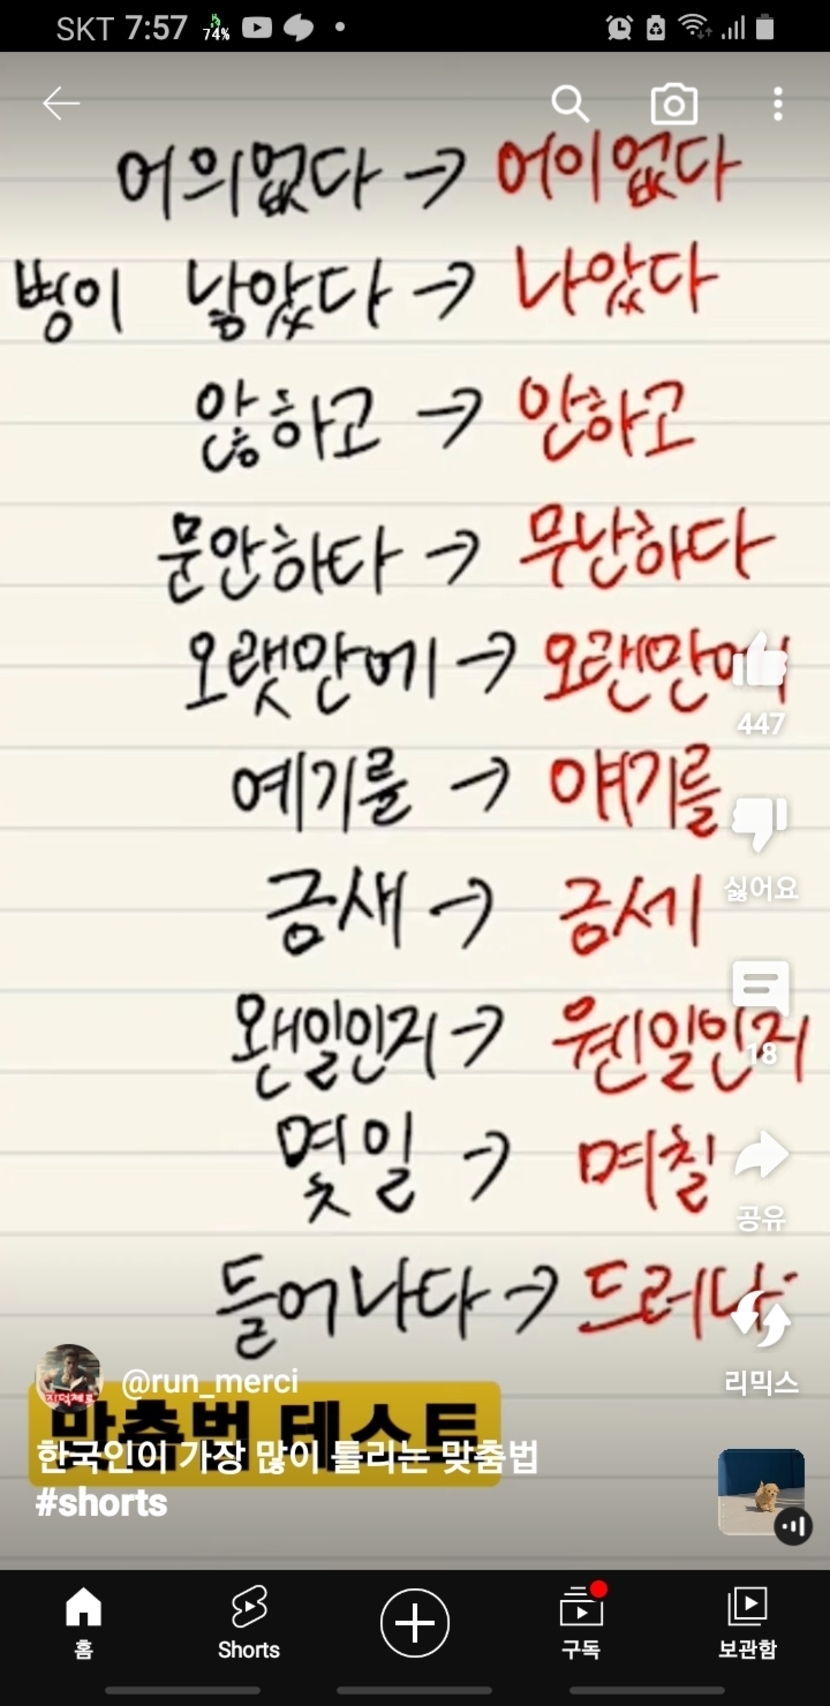 SKT 7:57 74%
어의없다 → 어이없다
병이 낳았다 → 나았다
않하고 → 안하고
문안하다 → 무난하다
오랫만에 → 오랜만에
447
예기를 → 얘기를
싫어요
금새 → 금세
왠일인지 → 웬일인지
18
몇일 → 며칠
공유
들어나다 → 드러나
리믹스
@run_merci
맞춤법 테스트
한국인이 가장 많이 틀리는 맞춤법
#shorts
홈 Shorts 구독 보관함